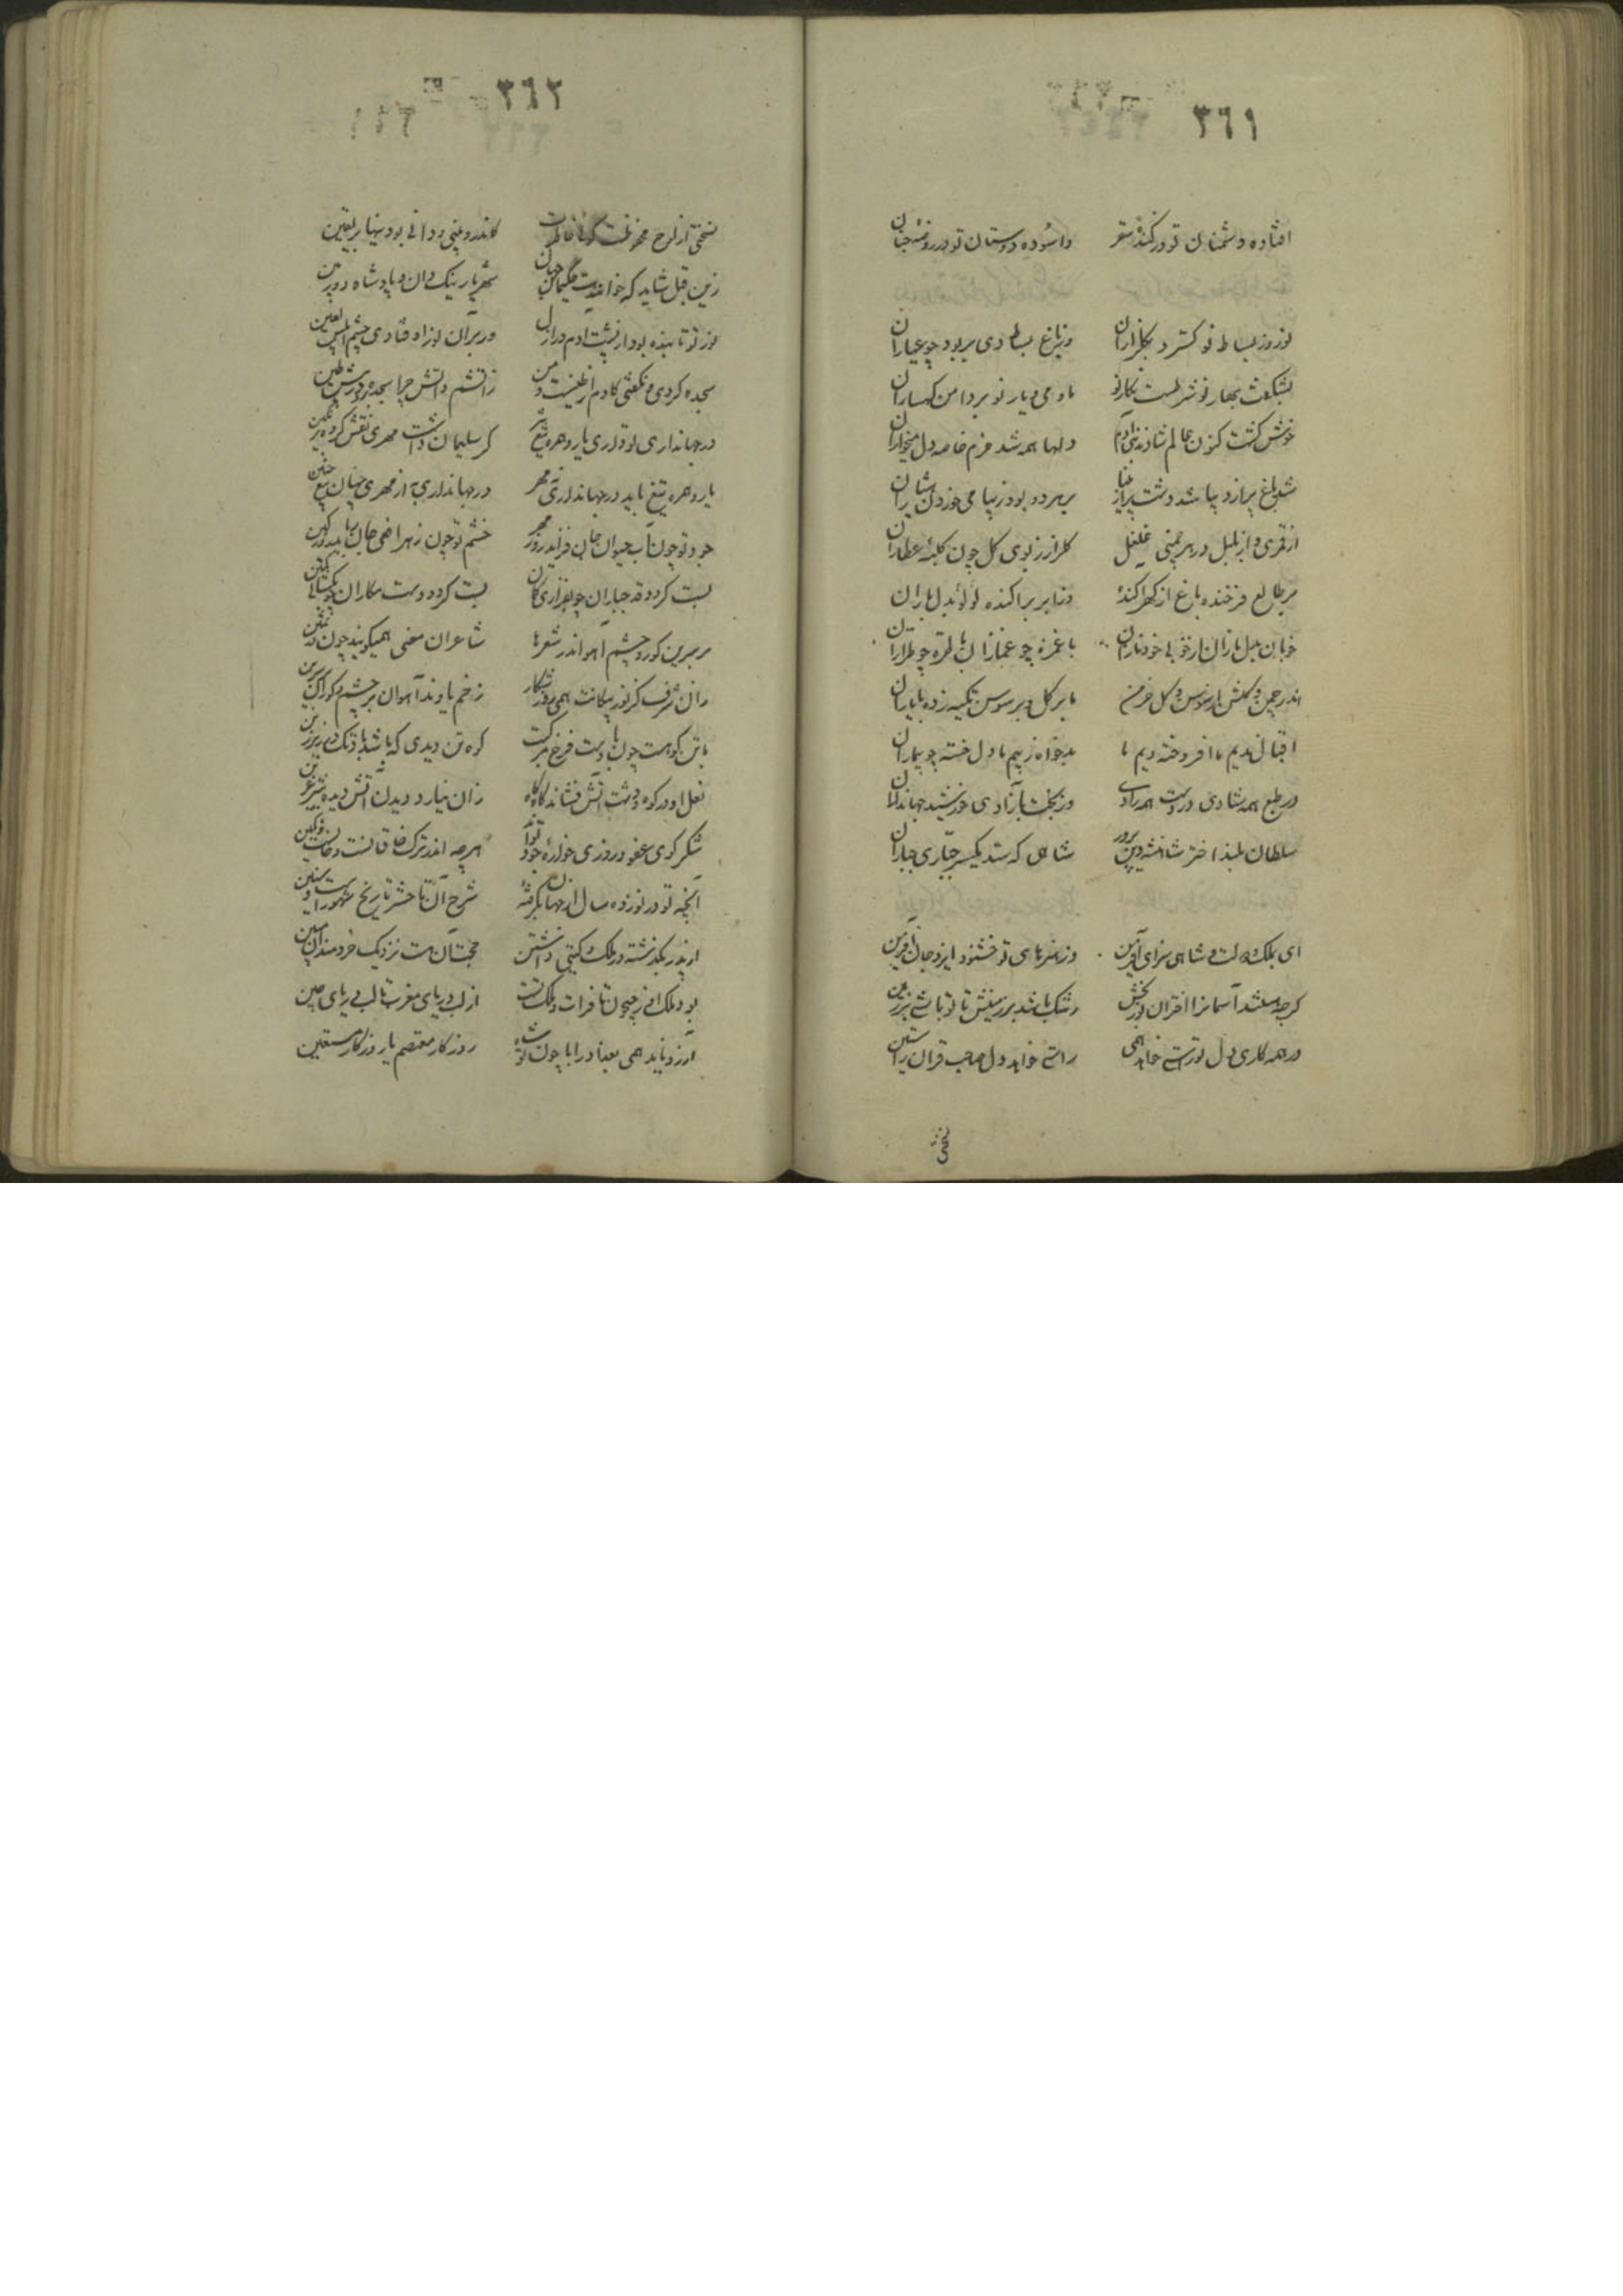 ٣٦١
افتاده دشمنان تو در کندهٔ سقر واسوده دوستان تو در روضهٔ جنان
نوروز بساط نو گسترد بگلزاران وز باغ بساط دی بربود چو عیاران
بشکفت بهار نو شرطست نگار نو با می و یار نو بر دامن کهساران
خوش گشت کنون عالم شادند بنی آدم دلها همه شد خرم خاصه دل میخواران
شد باغ پر از دیبا شد دشت پر از
از قمری و از بلبل در هر چمنی غلغل گلزار ز بوی گل چون کلبهٔ عطاران
بر طالع فرخنده باغ از گهر آکنده وز ابر پراکنده لؤلؤ بدل باران
خوبان با غمزه چو غمازان با طره چو طراران
اندر چمن و گلشن از سوسن و گل خرمن با بر گل و بر سوسن تکیه زده با یاران
اقبال ندیم ما افروخته دیم ما بدخواه ز بیم ما دل خسته چو بیماران
در طبع همه شادی در دست همه رادی وز بخت بآزادی خورشید جهانداران
سلطان بلند اختر شاهنشه دین پرور شاهی که ستد یکسر جباری جباران
ای بملک و دولت و شاهی سزای آفرین وز هنرهای تو خشنود ایزد جان آفرین
گرچه باشد آسمانرا اختران نوربخش رشک باشد بر زمینش تا تو باشی بر زمین
در همه کاری دل تو راستی خواهد همی راستی خواهد دل صاحب قران راستین
٣٦٢
نسختی از لوح محفوظست گوئی خاطرت کاندرو بینی و دانی بودنیها بر یقین
زین قبل شاید که خوانندت حکیمان جهان شهریار نیک دان و پادشاه دوربین
نور تو تابنده بود از پشت آدم در ازل ور بر آن نور اوفتادی چشم ابلیس لعین
سجده کردی و نگفتی کادم از طینست و من زاتشم و آتش چرا سجده برد در پیش طین
در جهانداری تو داری یارو همره تیغ و گر سلیمان داشت مهری نقش کرده بر نگین
یار و همره تیغ باید در جهانداری نه مهر در جهانداری به از مهری چنان تیغ چنین
جود تو چون آب حیوان جان فزاید روز مهر خشم تو چون زهر افعی جان رباید روز کین
پست کرد و قد جباران بست کرد و دست مکاران
بر سرین گور و چشم آهو اندر شعرها شاعران معنی همیگویند چون در ثمین
زان شرف کز نور پیکانت همی روز شکار زخم یابند آهوان بر چشم و گوران بر سرین
با تن کوهست چون بادست فرخ مرکبت کوه تن دیدی که باشد باد تک در زیر زین
نعل او در کوه و دشت آتش فشاند گاه گاه زان نیارد دیدن آتش دیدهٔ شیر عرین
شکر گوی عفو و روزی خوارهٔ جود تواند هرچه اندر ترک خاقانست و خانست و تکین
آنچه تو در نوزده سال از جهان بگرفتهٔ شرح آن تا حشر تاریخ شهور است و سنین
از پدر بگذشته در ملک گیتی داشتن حجت آن هست نزدیک خردمندان مبین
بود ملک او ز جیحون تا فرات و ملک تست از لب دریای مغرب تا لب دریای چین
آرزو ناید همی بغداد را با چون تو شاه روزگار معتصم یا روزگار مستعین